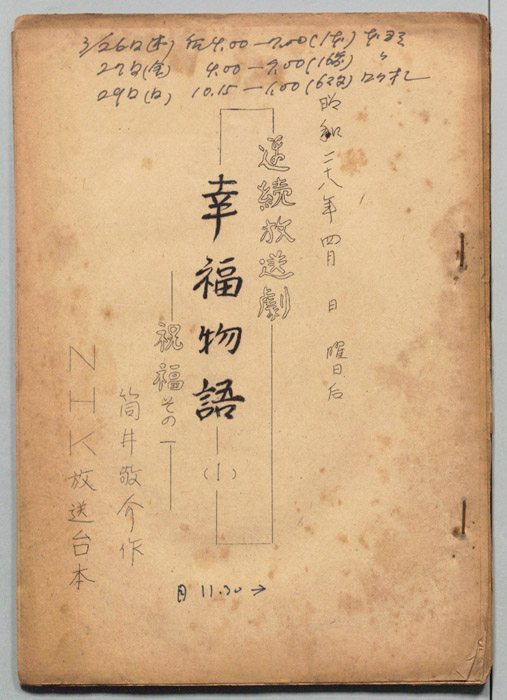 3/26日(木) 4.00-7.00(1本)
27日(金) 4.00-9.00(16)
29日(日) 10.15-1.00(6
昭和二八年四月 日 曜日后
連続放送劇
幸福物語
(1)
—祝福その一—
筒井敬介作
NHK放送台本
月 11.30→